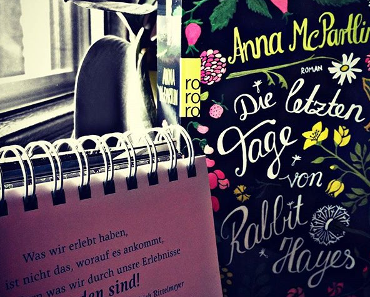 Anna McPartlin
ROMAN
Die letzten
Tage
von
Rabbit
Hayes
ro
ro
ro
ANNA
Was wir erlebt haben,
ist nicht das, worauf es ankommt,
was wir durch unsre Erlebnisse
den sind!
Rittelmeyer